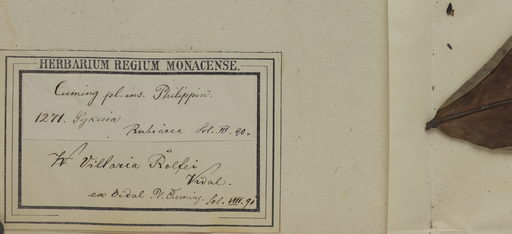 HERBARIUM REGIUM MONACENSE.
Cuming pl. ins. Philippin.
1271. Sykesia
Rubiacea Sol. III. 90.
Villaria Rolfei
Vidal.
ex Vidal Ph. Cuming. Sol. VIII. 91